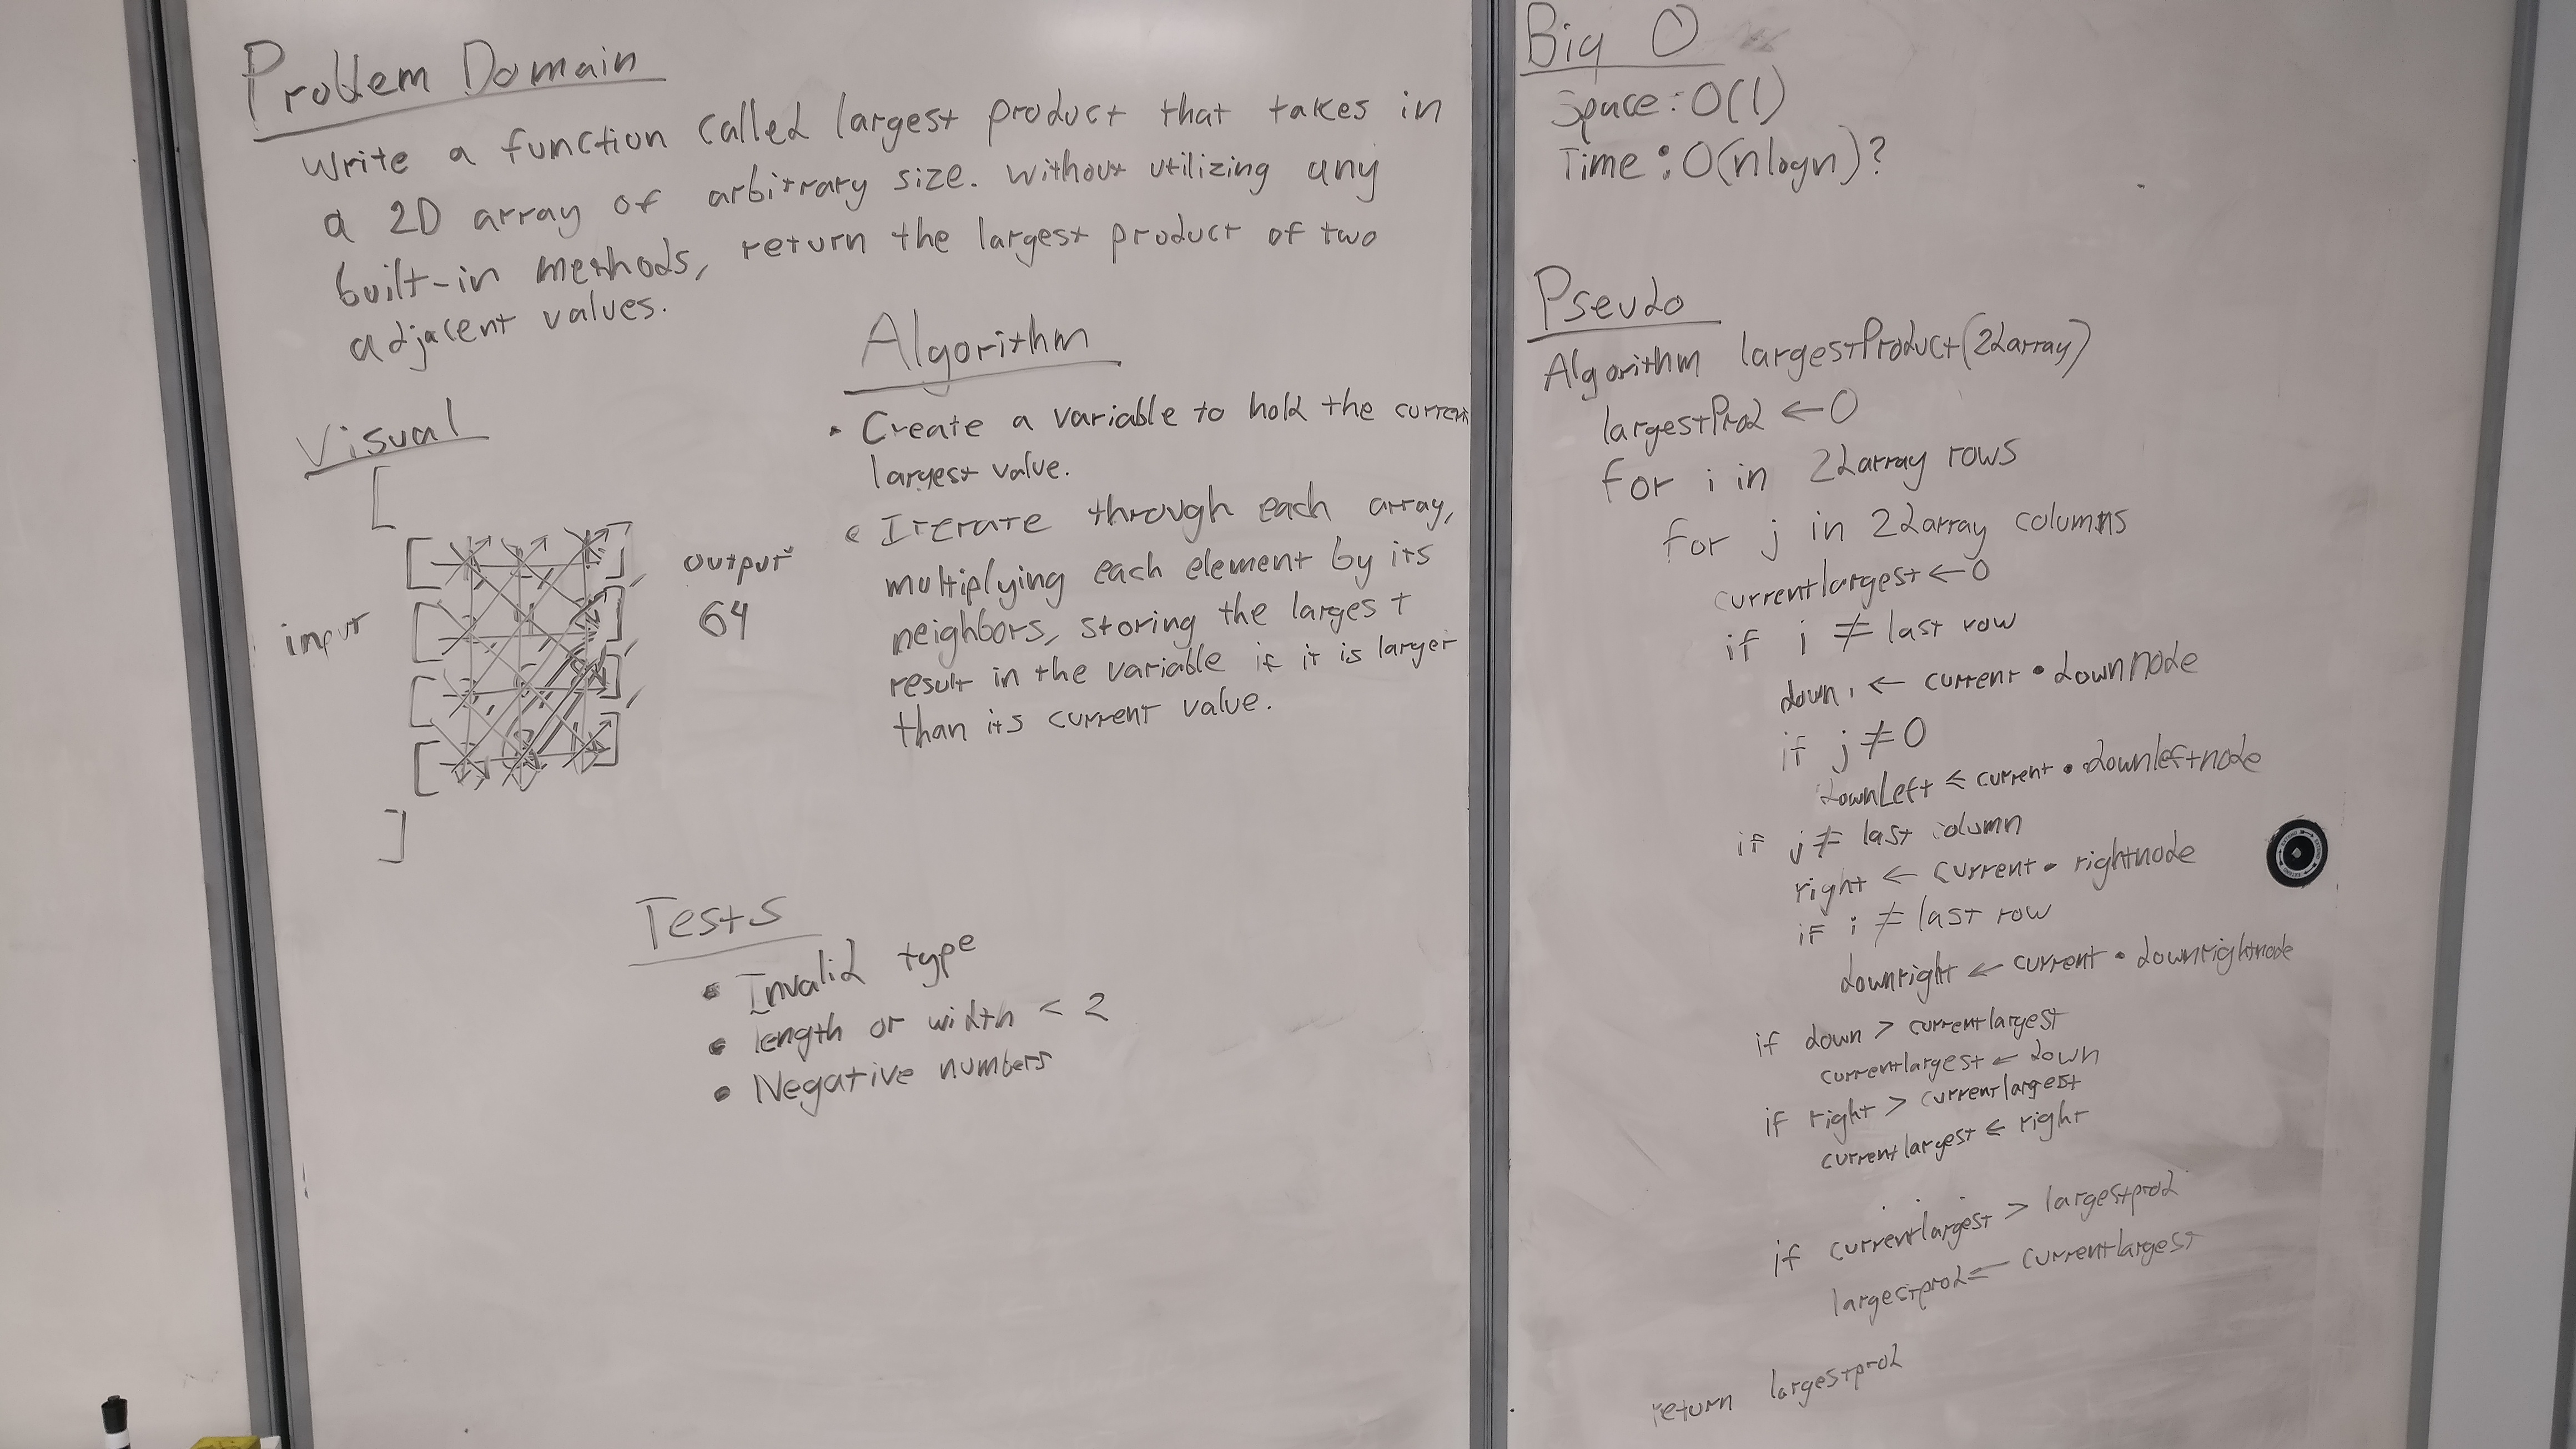 Problem Domain
Write a function called largest product that takes in
a 2D array of arbitrary size. without utilizing any
built-in methods, return the largest product of two
adjacent values.
Visual
[
input
]
output
64
Algorithm
• Create a variable to hold the current
largest value.
• Iterate through each array,
multiplying each element by its
neighbors, storing the largest
result in the variable if it is larger
than its current value.
Tests
• Invalid type
• length or width < 2
• Negative numbers
Big O
Space: O(1)
Time: O(nlogn)?
Pseudo
Algorithm largestProduct(2darray)
largestProd ← 0
for i in 2darray rows
for j in 2darray columns
currentlargest ← 0
if i ≠ last row
down ← current • downnode
if j ≠ 0
downLeft ← current • downleftnode
if j ≠ last column
right ← current • rightnode
if i ≠ last row
downright ← current • downrightnode
if down > currentlargest
currentlargest ← down
if right > currentlargest
currentlargest ← right
if currentlargest > largestprod
largestprod ← currentlargest
return largestprod